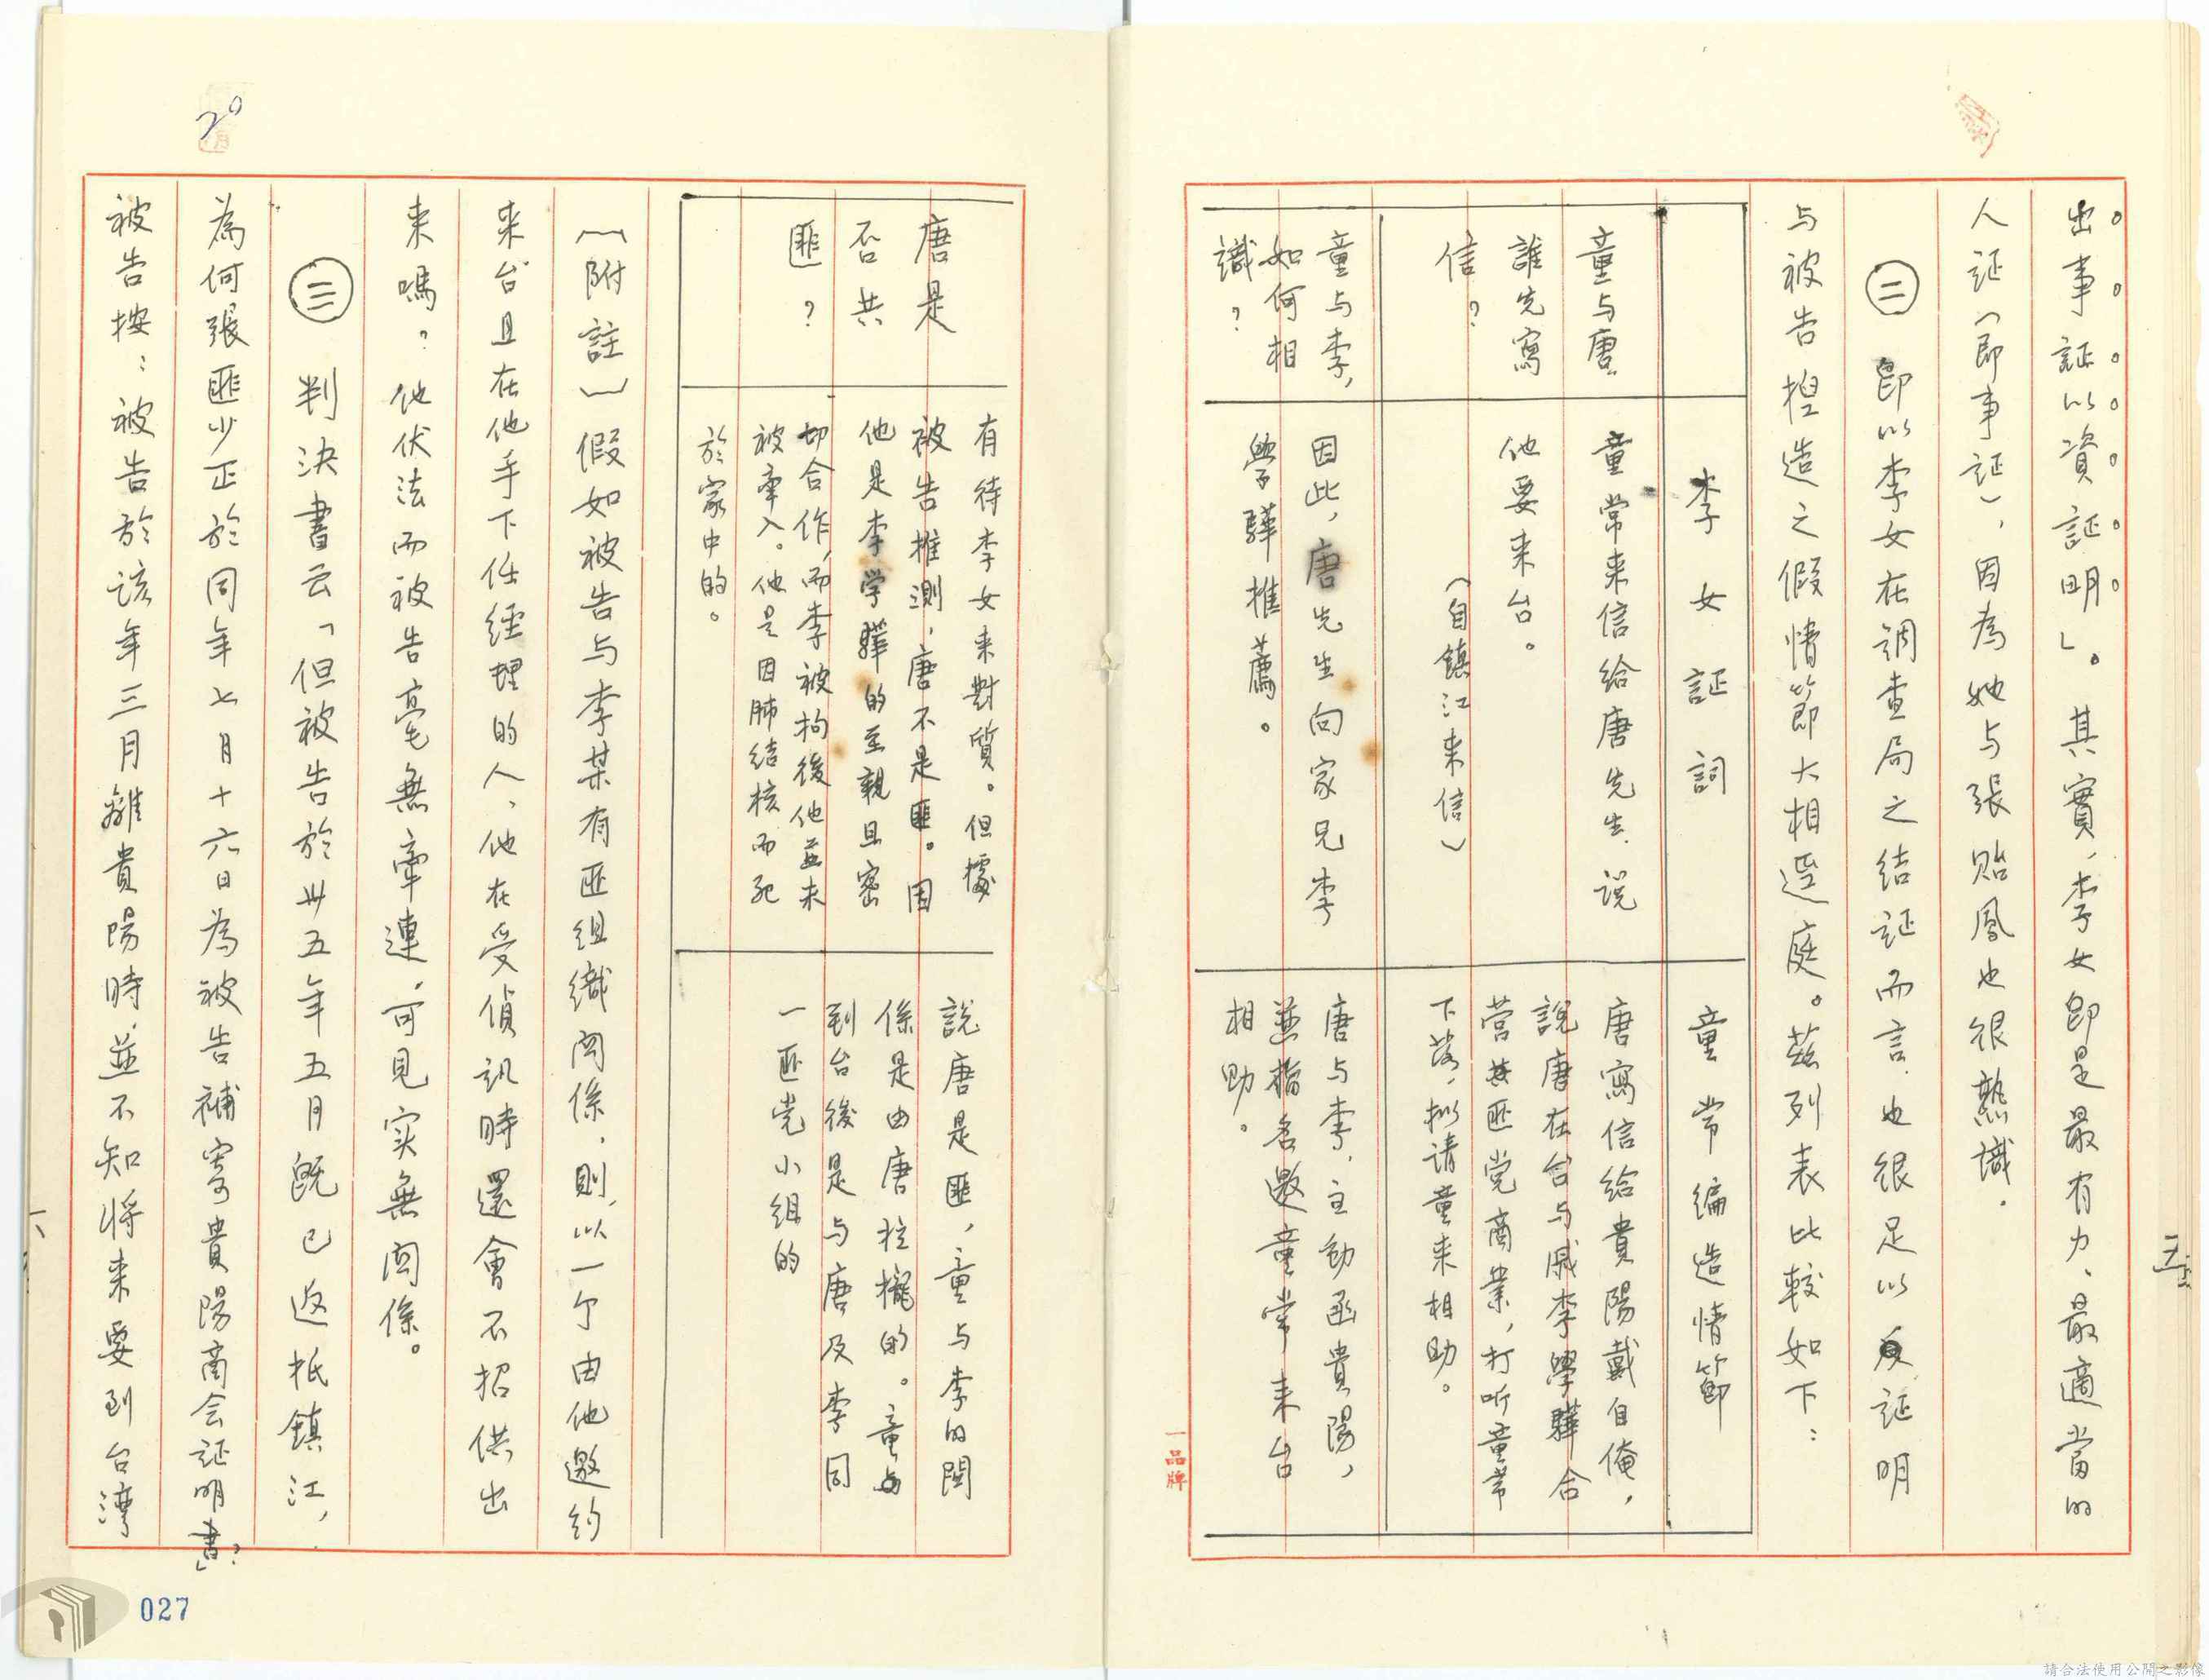 出事証以資証明」。其實,李女即是最有力、最適當的
人証(即事証),因為她与張貽鳳也很熟識.
㊁ 即以李女在調查局之结証而言.也很足以反証明
与被告揑造之假情節大相逕庭。茲列表比較如下:
李女証詞
童常編造情節
童与唐
誰先寫
信?
童常来信给唐先生.说
他要来台。
(自鎮江来信)
唐寫信给貴陽戴自俺,
說唐在台与戚李學驊合
营其匪党商業,打听童常
下落,拟请童来相助。
童与李,
如何相
識?
因此,唐先生向家兄李
學驊推薦。
唐与李,主動函貴陽,
並指名邀童常来台
相助。
一品牌
五
唐是
否共
匪?
有待李女来對質。但據
被告推測,唐不是匪。因
他是李学驊的至親且密
切合作,而李被拘後他並未
被牵入。他是因肺结核而死
於家中的。
說唐是匪,童与李的関
係是由唐拉攏的。童与
到台後是与唐及李同
一匪党小组的
(附註)假如被告与李某有匪组織関係,則,以一个由他邀约
来台且在他手下任經理的人,他在受偵訊時還會不招供出
来嗎?他伏法而被告毫無牽連,可見实無関係。
㊂ 判決書云「但被告於卅五年五月既已返抵鎮江,
為何張匪少正於同年七月十六日為被告補寄貴陽商会証明書?」
被告按:被告於该年三月離貴陽時並不知将来要到台湾
六
20
027
請合法使用公開之影像